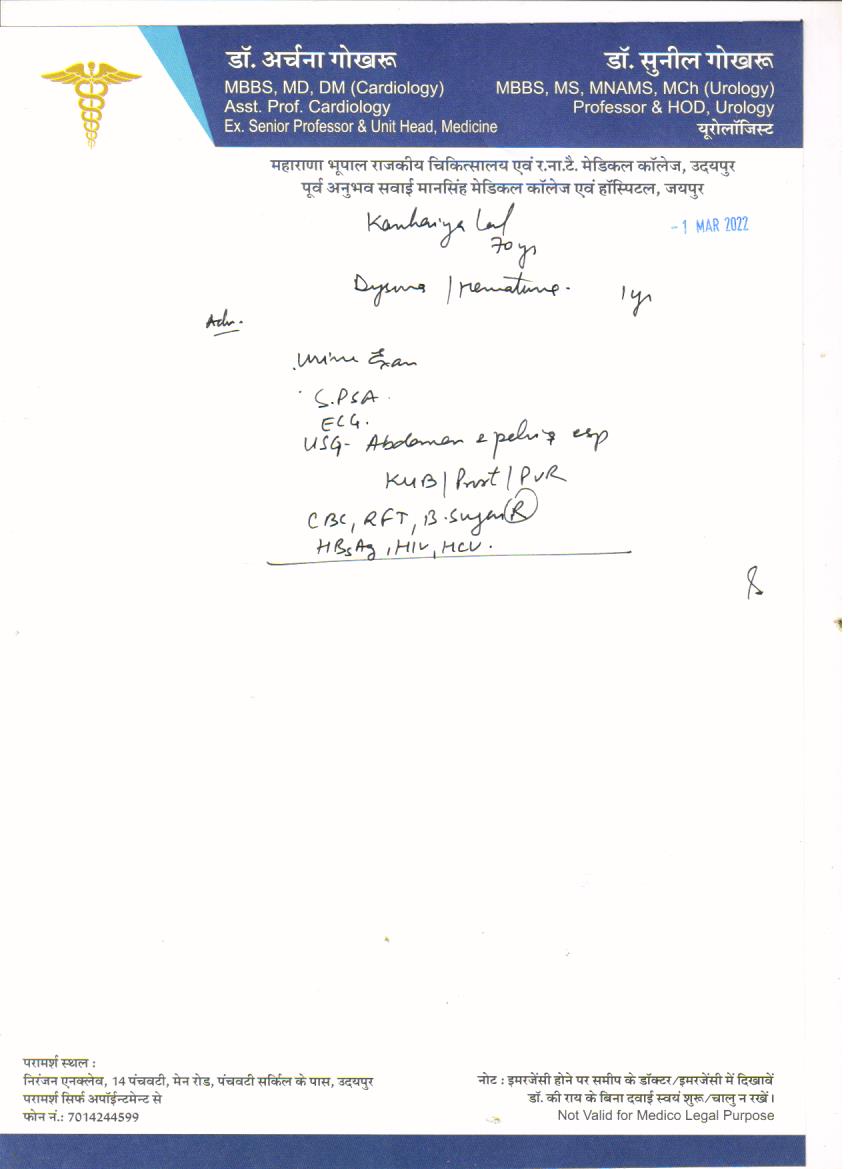 डॉ. अर्चना गोखरू
MBBS, MD, DM (Cardiology)
Asst. Prof. Cardiology
Ex. Senior Professor & Unit Head, Medicine
डॉ. सुनील गोखरू
MBBS, MS, MNAMS, MCh (Urology)
Professor & HOD, Urology
यूरोलॉजिस्ट
महाराणा भूपाल राजकीय चिकित्सालय एवं र.ना.टै. मेडिकल कॉलेज, उदयपुर
पूर्व अनुभव सवाई मानसिंह मेडिकल कॉलेज एवं हॉस्पिटल, जयपुर
-1 MAR 2022
Kanhaiya Lal
70 yrs
Dysuria / Hematuria. 1 yr
Adv.
Urine Exam
S. PSA.
ECG.
USG- Abdomen & pelvis esp
KUB / Prost / PVR
CBC, RFT, B. Sugar (R)
HBsAg, HIV, HCV.
परामर्श स्थल :
निरंजन एनक्लेव, 14 पंचवटी, मेन रोड, पंचवटी सर्किल के पास, उदयपुर
परामर्श सिर्फ अपॉईन्टमेन्ट से
फोन नं.: 7014244599
नोट : इमरजेंसी होने पर समीप के डॉक्टर/इमरजेंसी में दिखावें
डॉ. की राय के बिना दवाई स्वयं शुरू/चालु न रखें।
Not Valid for Medico Legal Purpose